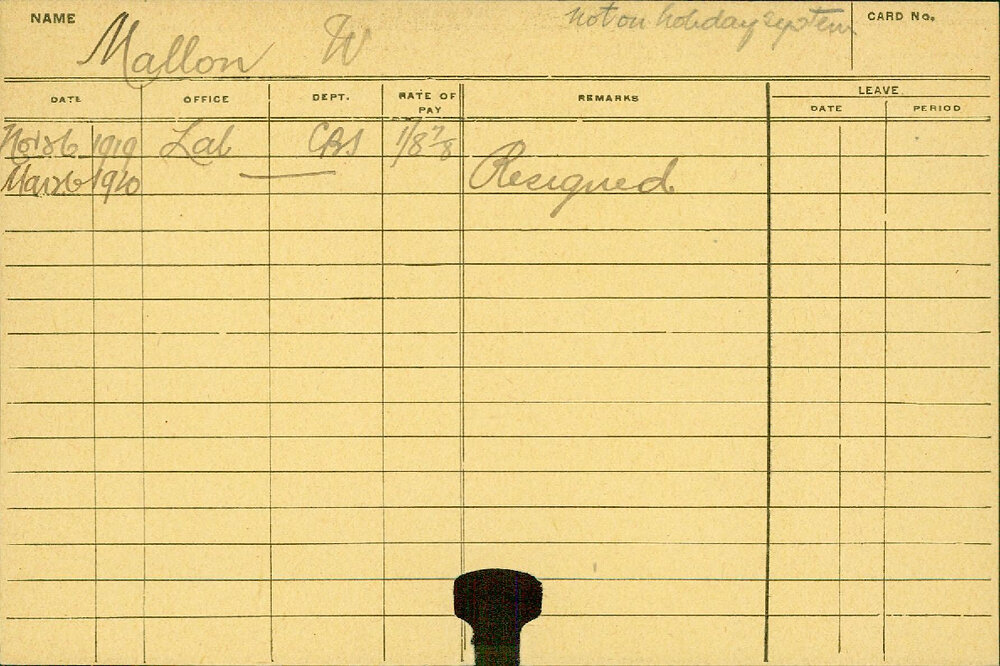 NAME Mallon W not on holiday system CARD No.
DATE OFFICE DEPT. RATE OF PAY REMARKS LEAVE
DATE PERIOD
1919 Lab 1/8 7/8
Mar 26 1920 Resigned